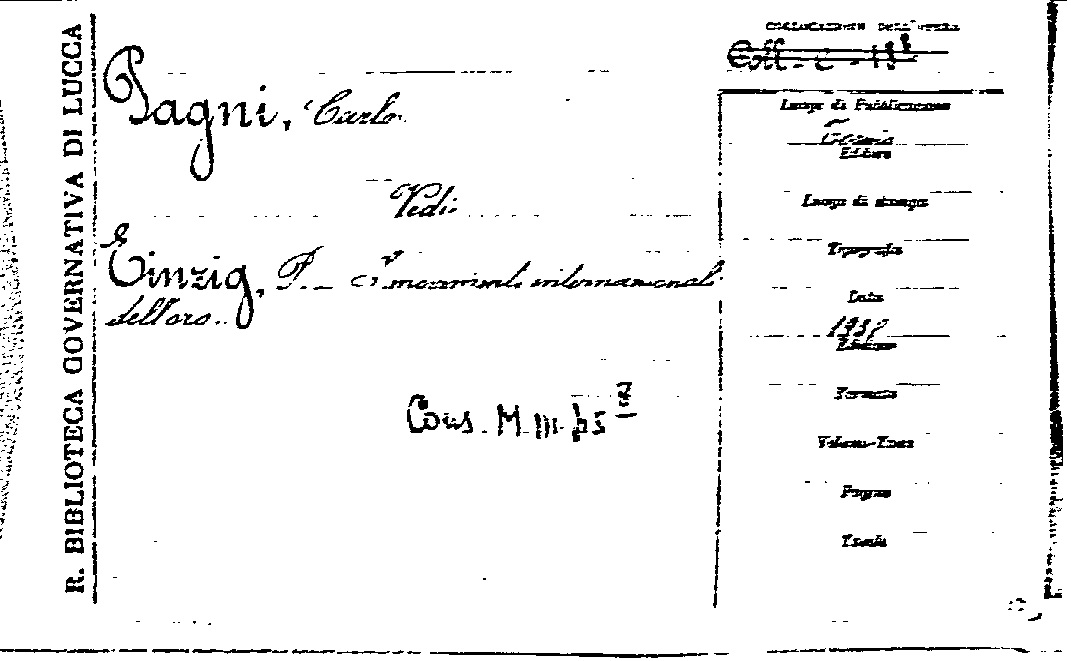 R. BIBLIOTECA GOVERNATIVA DI LUCCA
Pagni, Carlo
Vedi:
Einzig, P. - I movimenti internazionali
dell'oro.
Cons. M. III. 65
COLLOCAZIONE DELL'OPERA
Coll - C - 13
Luogo di Pubblicazione
Editore
Luogo di stampa
Tipografia
Data
1937
Edizione
Formato
Volumi-Tomi
Pagine
Tavole